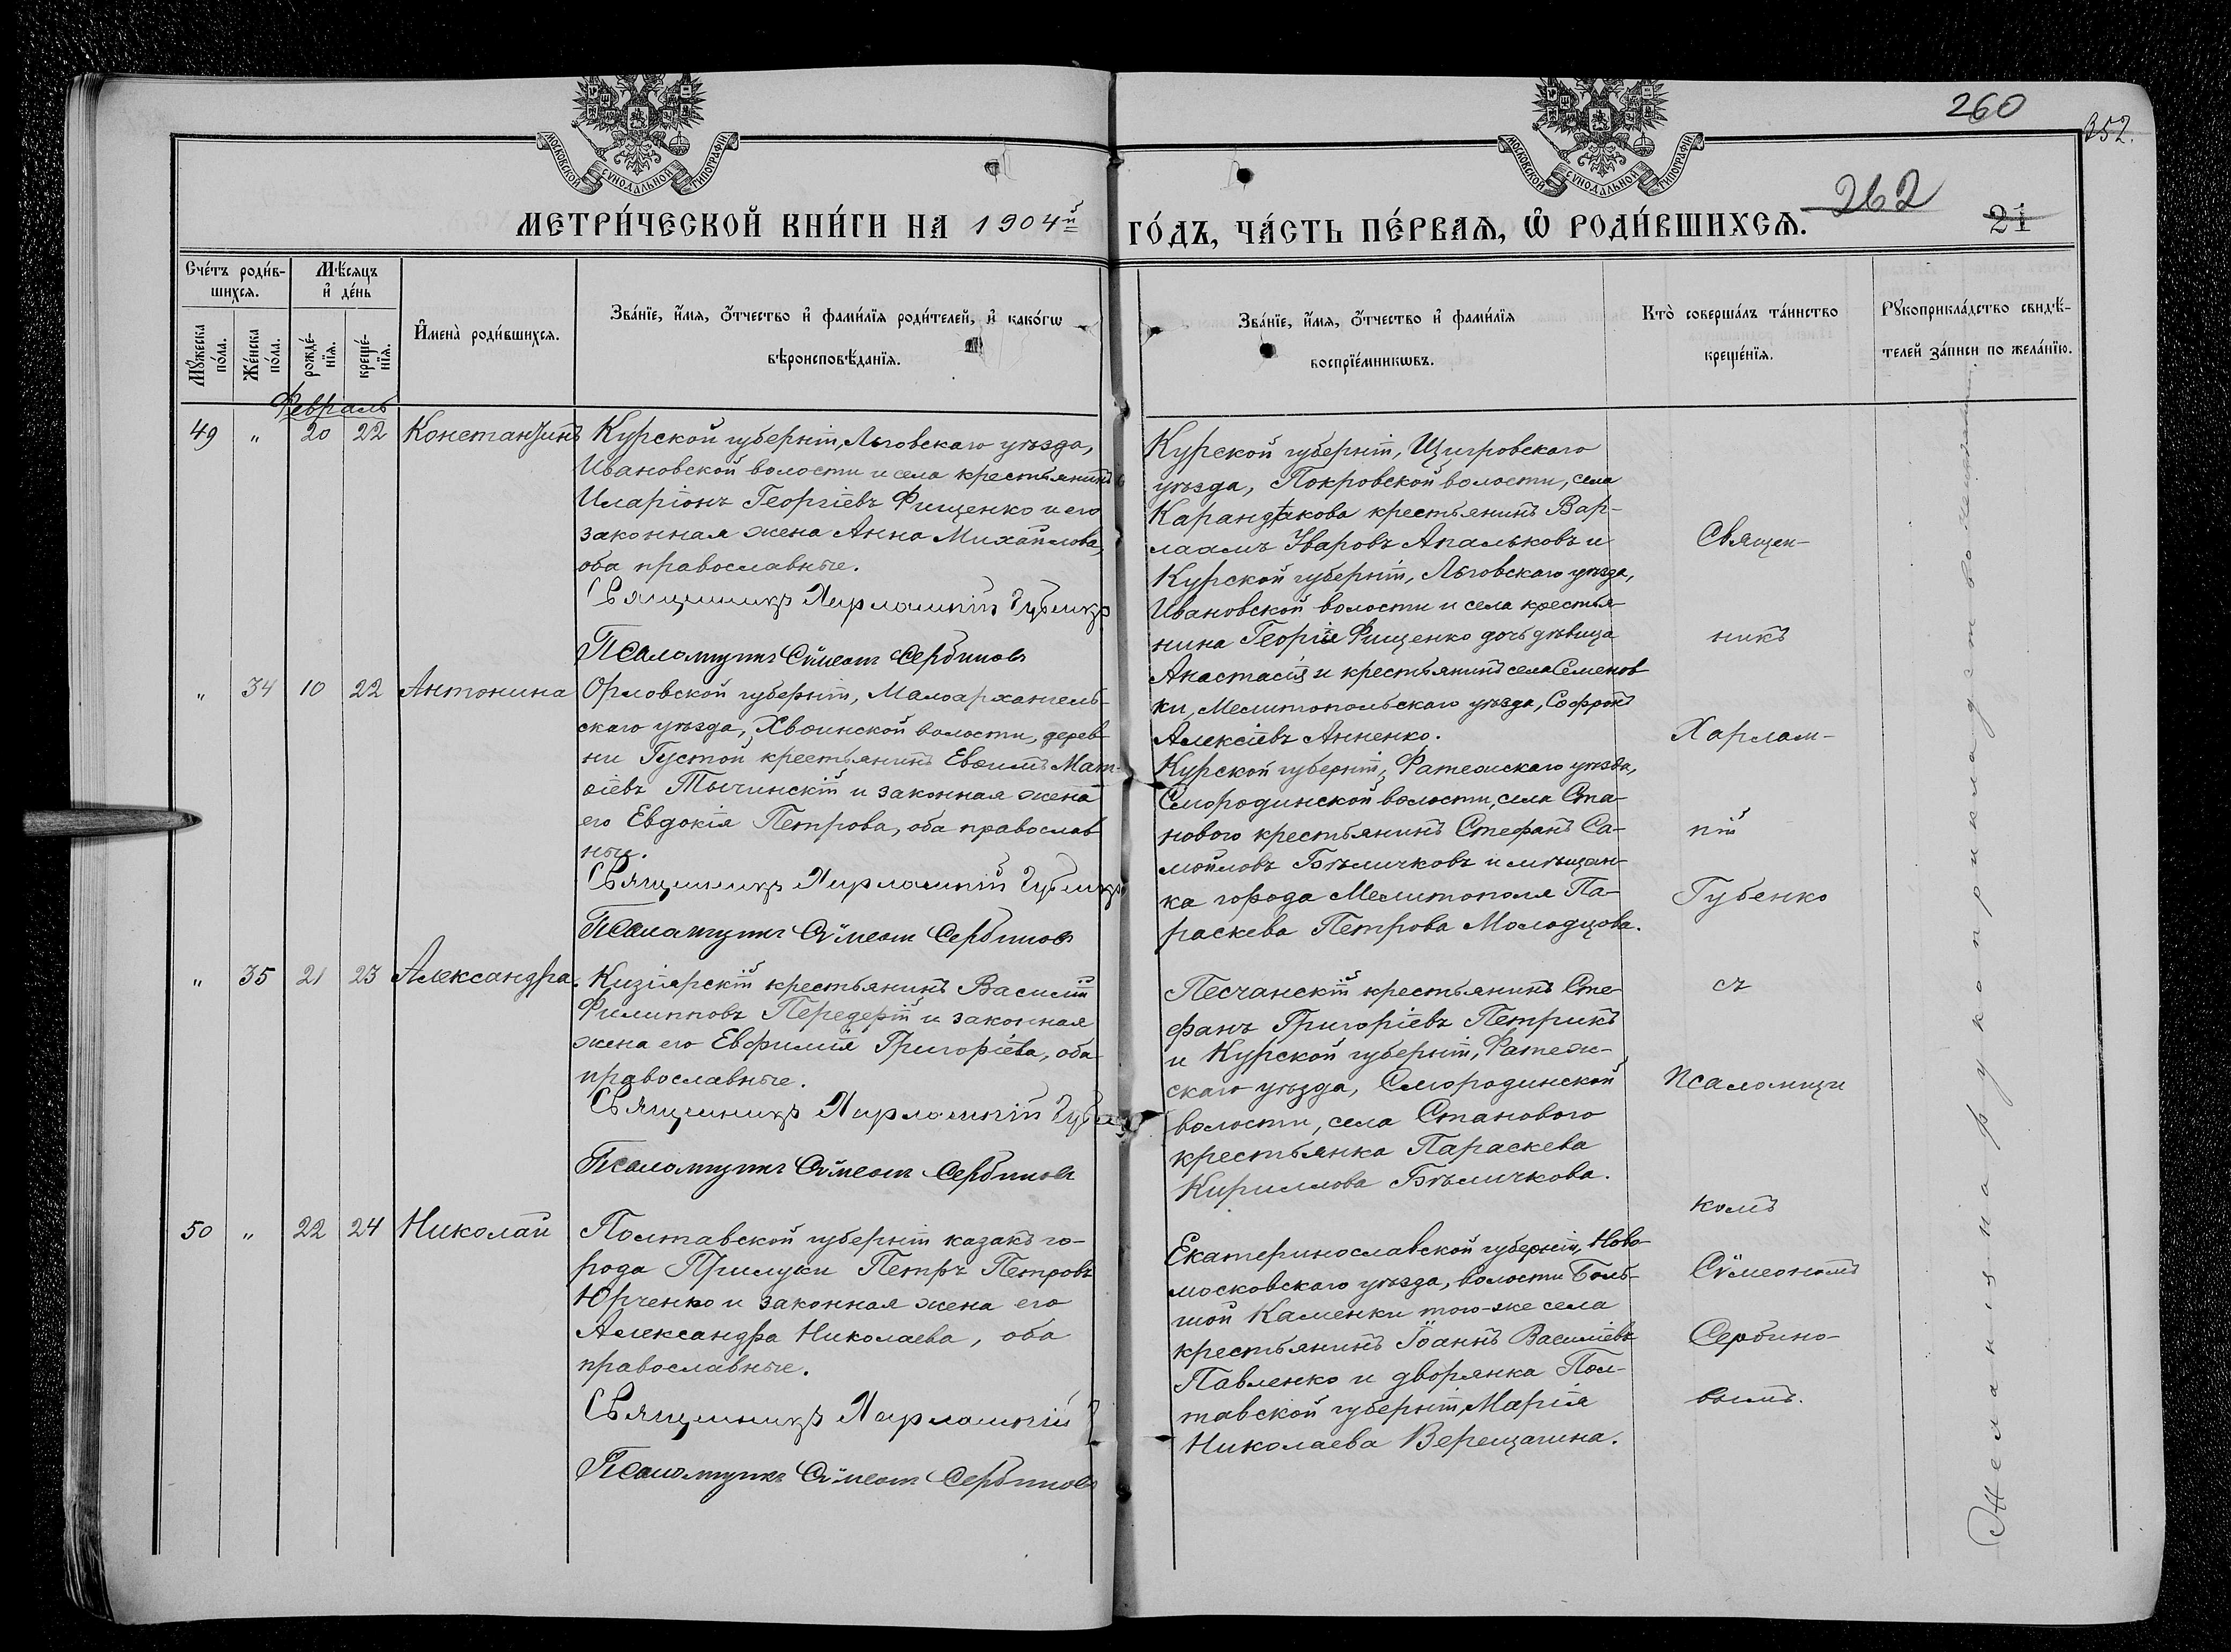 260
252.
МОСКОВСКОЙ СѴНОДАЛЬНОЙ ТИПОГРАФІИ
МОСКОВСКОЙ СѴНОДАЛЬНОЙ ТИПОГРАФІИ
МЕТРИ́ЧЕСКОЙ КНИ́ГИ НА 1904й ГО́ДЪ, ЧА́СТЬ ПЕ́РВАЯ, Ѡ҆ РОДИ́ВШИХСЯ.
262
21
Сче́тъ роди́в-
шихся.
Мꙋ́жеска по́ла.
Же́нска по́ла.
Мѣ́сяцъ
и҆ де́нь
рожде́-
нїя.
креще́-
нїя.
И҆мена̀ роди́вшихся.
Зва́нїе, и҆́мя, ѻ҆́тчество и҆ фами́лїя роди́телей, и҆ како́гѡ
вѣроисповѣ́данїя.
Зва́нїе, и҆́мя, ѻ҆́тчество и҆ фами́лїя
воспрїе́мникѡвъ.
Кто̀ соверша́лъ та́инство
креще́нїя.
Рꙋкоприкла́дство свидѣ́-
телей за́писи по жела́нїю.
Февраль
49 " 20 22 Константинъ
Курской губерніи, Льговскаго уѣзда,
Ивановской волости и села крестьянинъ
Иларіонъ Георгіевъ Фищенко и его
законная жена Анна Михайлова,
оба православные.
Священникъ Харлампій Губенко
Псаломщикъ Сѵмеонъ Сербиновъ
Курской губерніи, Щигровскаго
уѣзда, Покровской волости, села
Карандакова крестьянинъ Вар-
лаамъ Уваровъ Апальковъ и
Курской губерніи, Льговскаго уѣзда,
Ивановской волости и села крестья-
нина Георгія Фищенко дочь дѣвица
Анастасія и крестьянинъ села Семенов
ки, Мелитопольскаго уѣзда, Софронъ
Алексіевъ Анненко.
" 34 10 22 Антонина
Орловской губерніи, Малоархангель-
скаго уѣзда, Хвоинской волости, дерев-
ни Густой крестьянинъ Евѳимъ Мат-
ѳіевъ Тычинскій и законная жена
его Евдокія Петрова, оба православ
ные.
Священникъ Харлампій Губенко
Псаломщикъ Сѵмеонъ Сербиновъ
Курской губерніи, Фатежскаго уѣзда,
Смородинской волости, села Ста-
нового крестьянинъ Стефанъ Са-
мойловъ Бѣличковъ и мѣщан-
ка города Мелитополя Па-
раскева Петрова Молодцова.
" 35 21 23 Александра.
Кизіярскій крестьянинъ Василій
Филипповъ Передерій и законная
жена его Евфимія Григоріева, оба
православные.
Священникъ Харлампій Губенко
Псаломщикъ Сѵмеонъ Сербиновъ
Песчанскій крестьянинъ Сте-
фанъ Григоріевъ Петрикъ
и Курской губерніи, Фатеж-
скаго уѣзда, Смородинской
волости, села Станового
крестьянка Параскева
Кириллова Бѣличкова.
50 " 22 24 Николай
Полтавской губерніи казакъ го-
рода Прилуки Петръ Петровъ
Юрченко и законная жена его
Александра Николаева, оба
православные.
Священникъ Харлампій
Псаломщикъ Сѵмеонъ Сербиновъ
Екатеринославской губерніи, Ново-
московскаго уѣзда, волости Боль-
шой Каменки того-же села
крестьянинъ Іоаннъ Василіевъ
Павленко и дворянка Пол-
тавской губерніи, Марія
Николаева Верещагина.
Священ-
никъ
Харлам-
пій
Губенко
съ
Псаломщи
комъ
Сѵмеономъ
Сербино-
вымъ.
Желанія на рукоприкладство